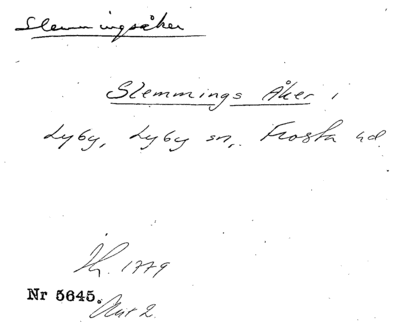 Slemmingsåker
Slemmings Åker i
Lyby, Lyby sn, Frosta hd
Jh. 1779
Nr 5645.
Akt 2.